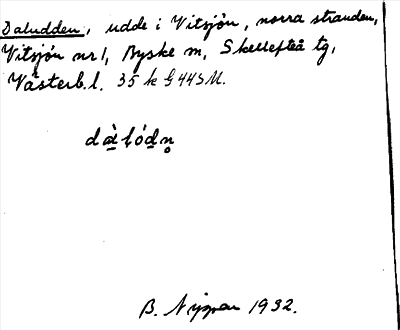 Daludden, udde i Vitsjön, norra stranden,
Vitsjön nr 1, Byske sn, Skellefteå tg,
Västerb.l. 35 k G 44 S M.
dàlódn
B. 1932.